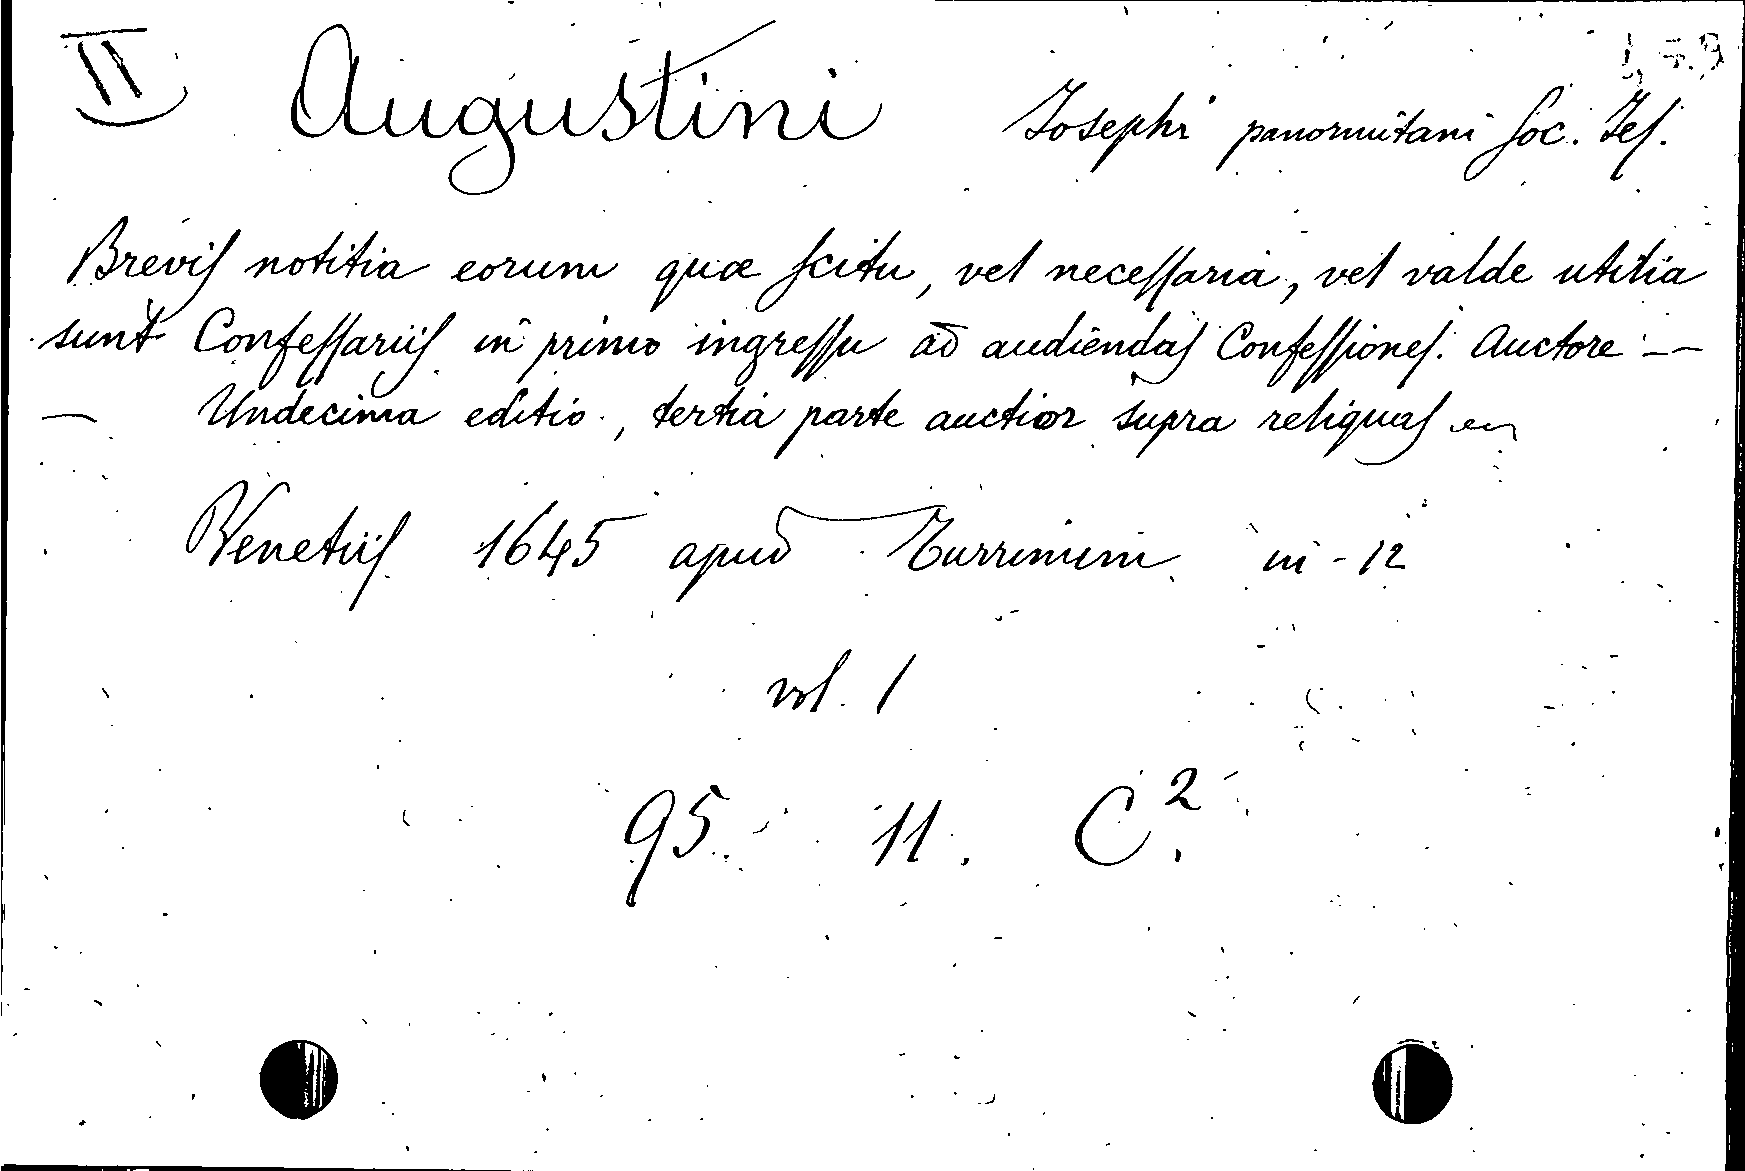 II Augustini Josephi panormitani Soc. Jes.
Brevis notitia eorum quæ scitu, vel necessaria, vel valde utilia
sunt Confessariis in primo ingressu ad audiendas Confessiones. Auctore —
— Undecima editio, tertia parte auctior supra reliquas
Venetiis 1645 apud Turrinum in-12
vol. 1
95. 11. C².